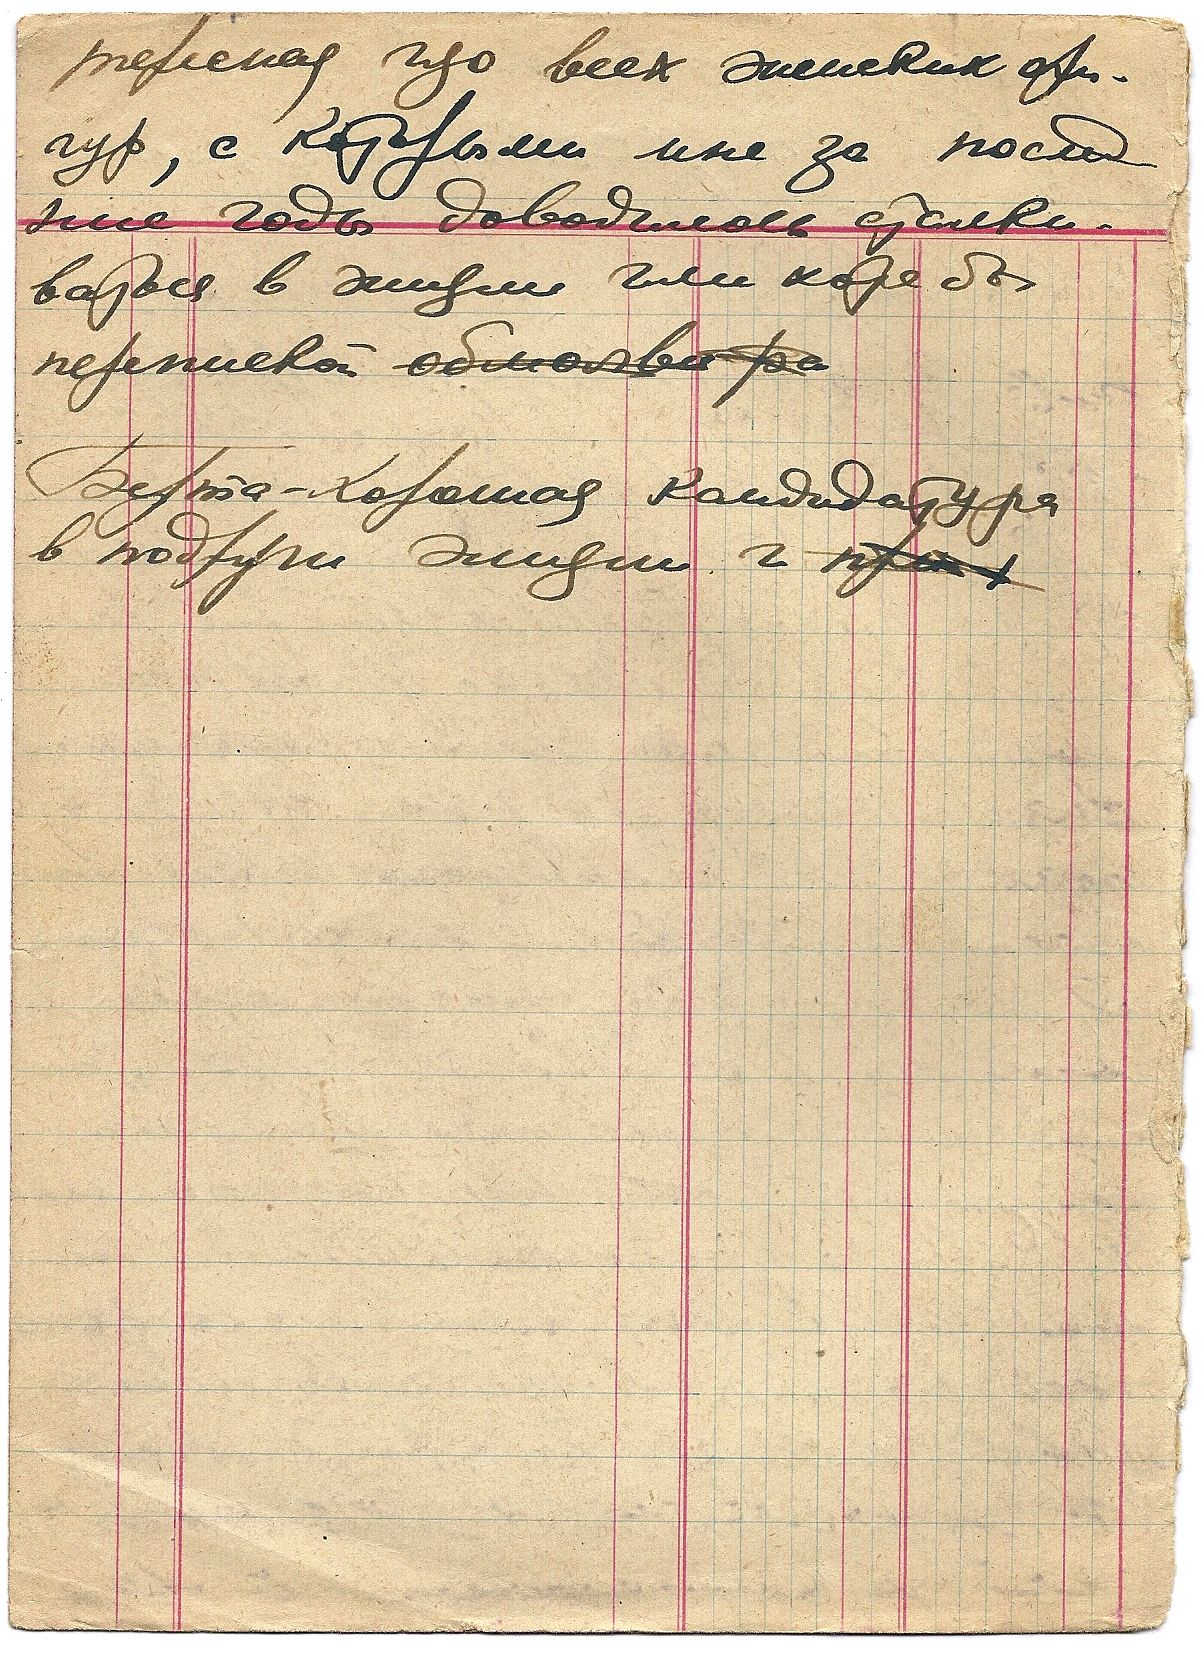 тересная изо всех женских фи-
гур, с которыми мне за послед
ние годы доводилось сталки-
ваться в жизни или хотя бы
перепиской
Берта - хорошая кандидатура
в подруги жизни и